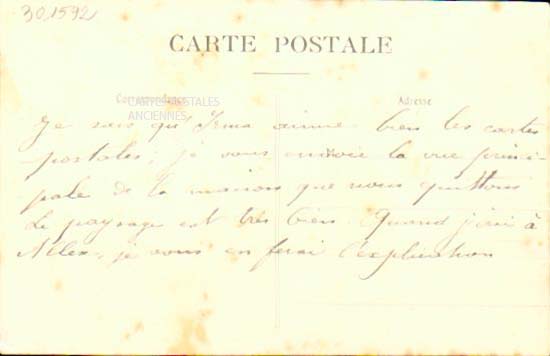 301592
CARTE POSTALE
Correspondance
CARTES POSTALES
ANCIENNES
Adresse
Je sais qu'Irma aime bien les cartes
postales, je vous envoie la vue princi-
pale de la maison que nous quittons
Le paysage est très bien. Quand j'irai à
je vous en ferai l'explication